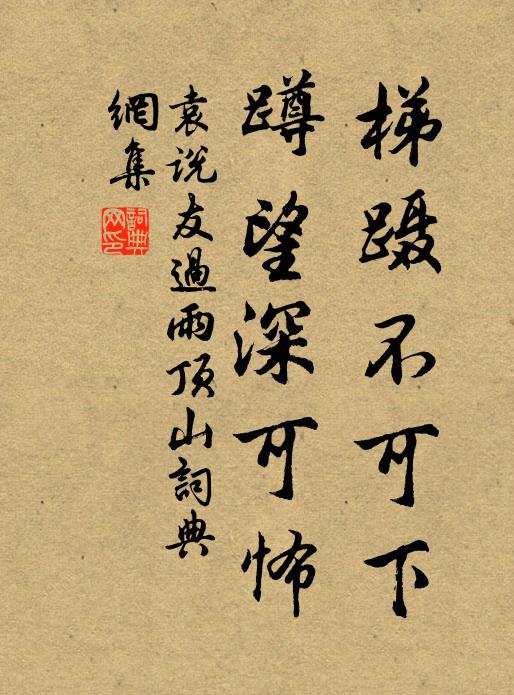 梯蹑不可下
蹲望深可怖
袁说友過雨頂山詞典
網集
詞典網印